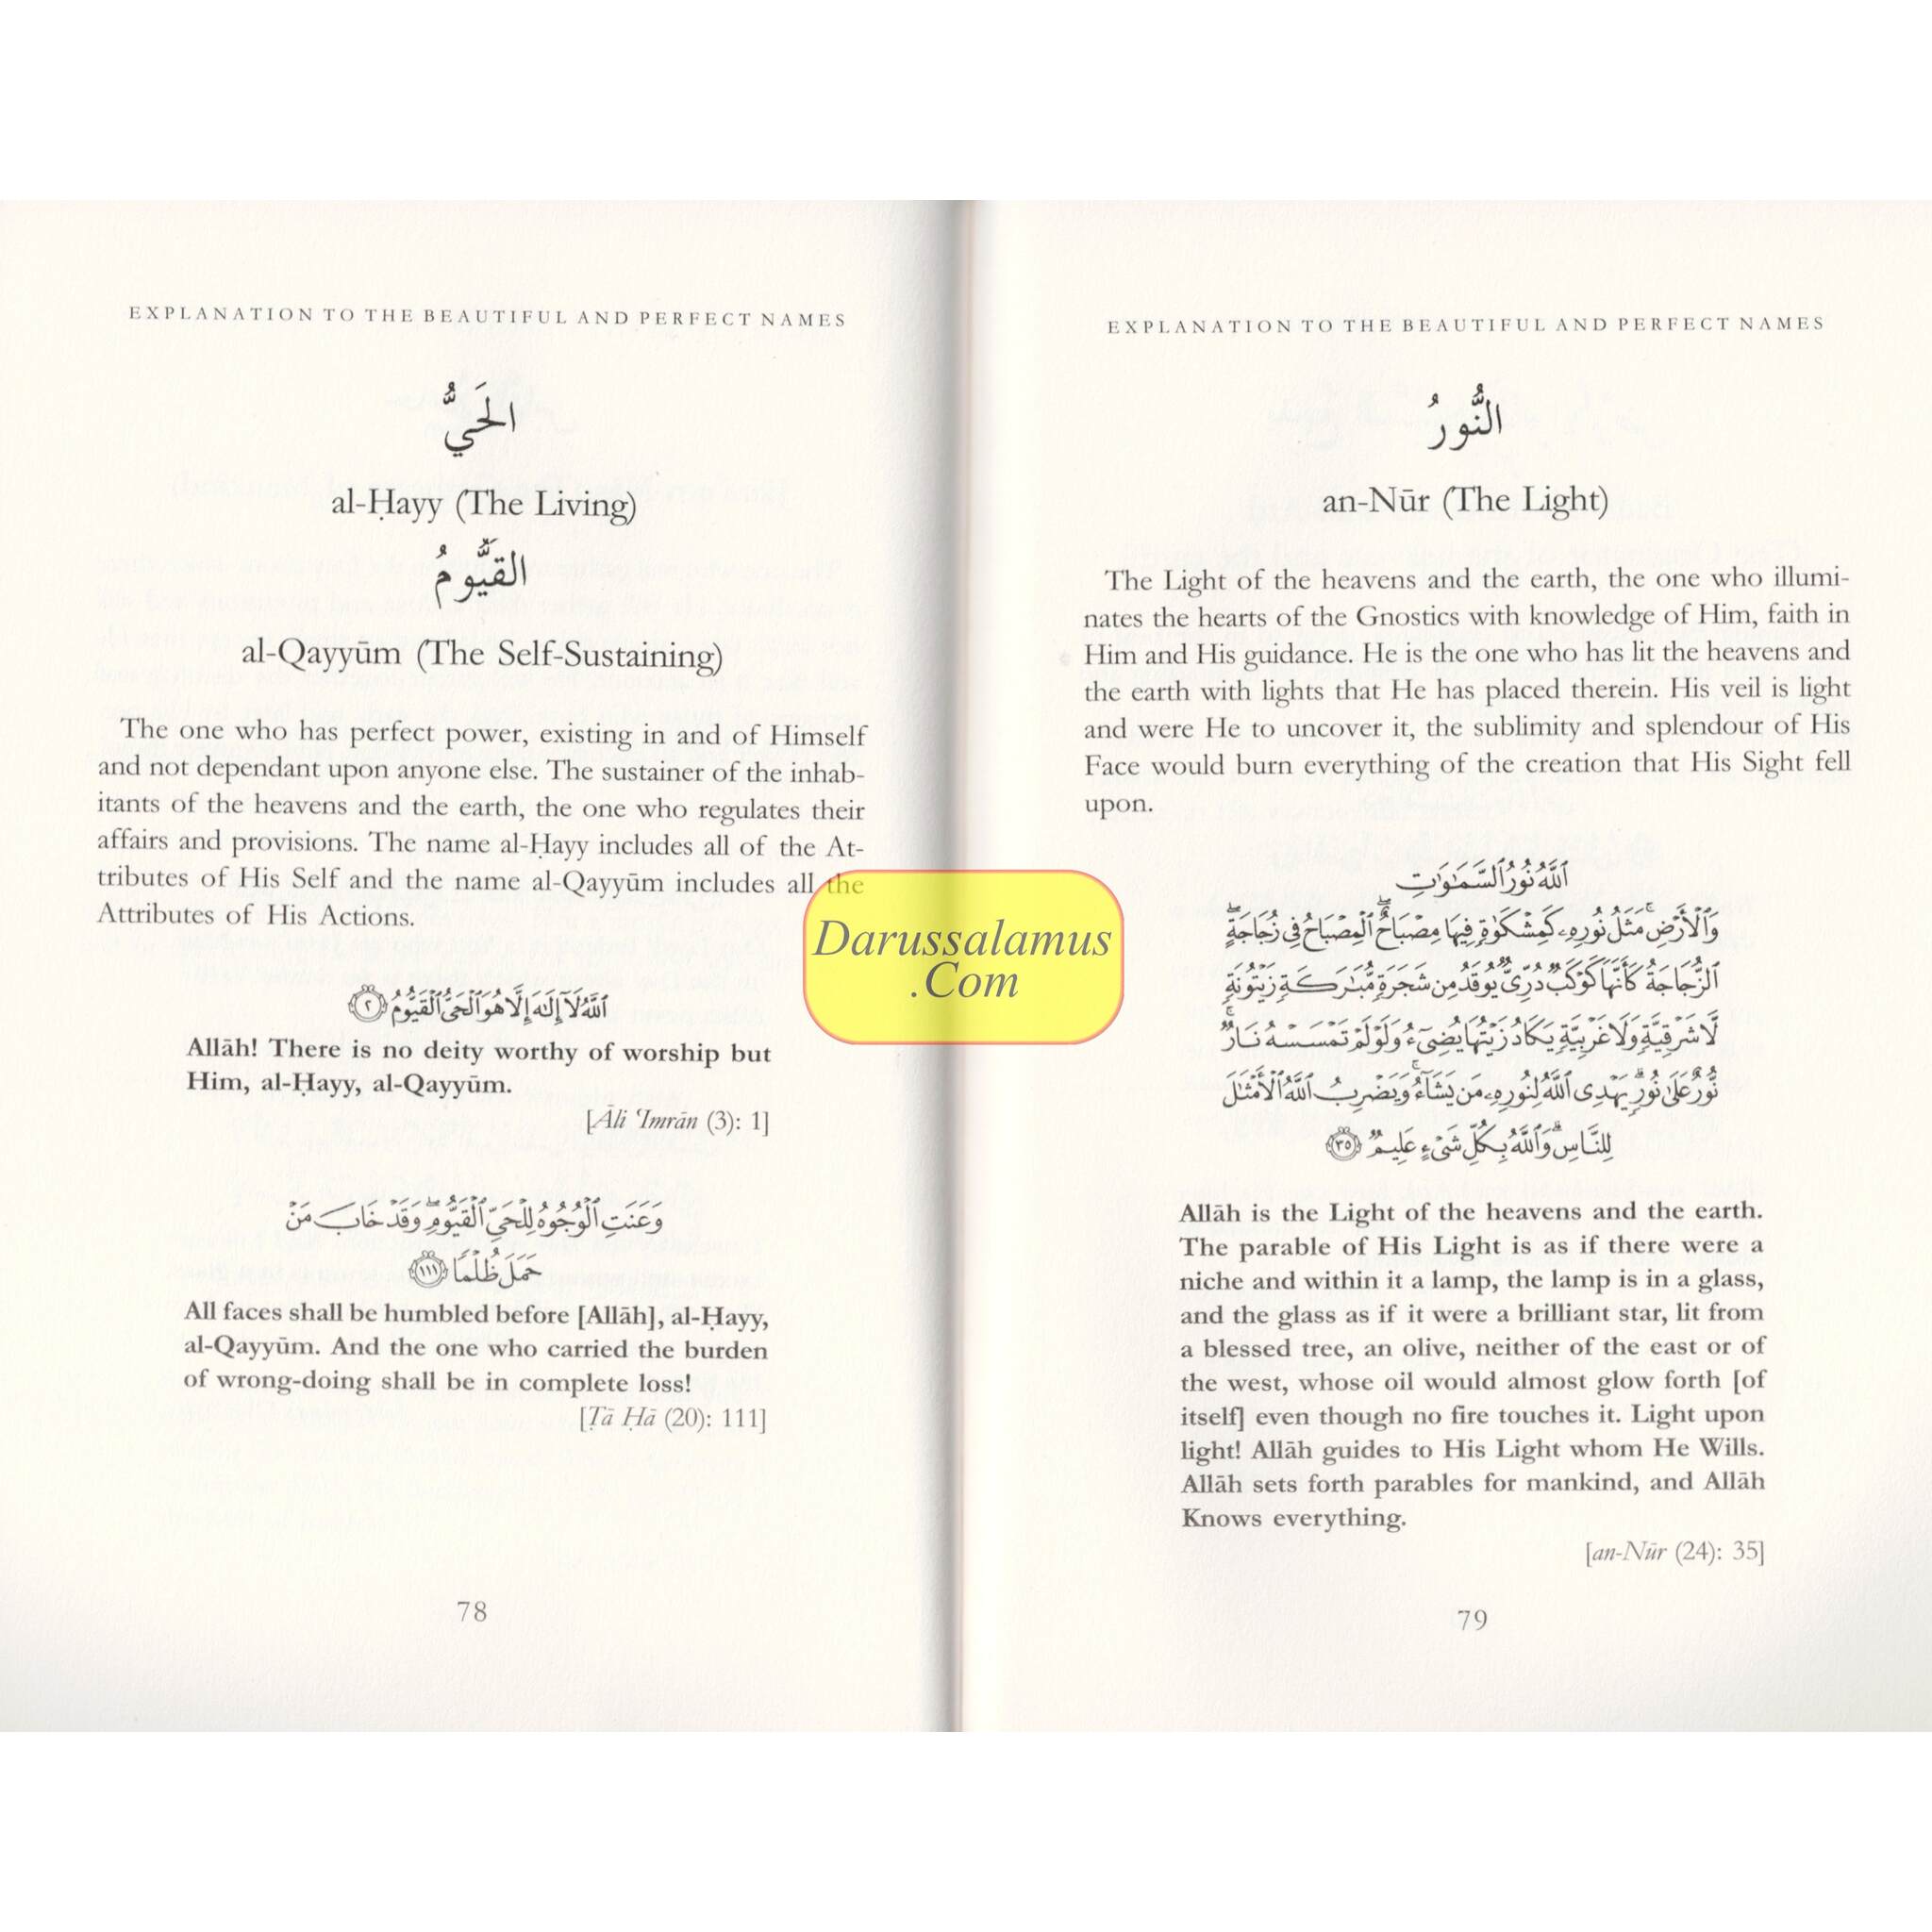 EXPLANATION TO THE BEAUTIFUL AND PERFECT NAMES
الحَيُّ
al-Ḥayy (The Living)
القَيُّومُ
al-Qayyūm (The Self-Sustaining)
The one who has perfect power, existing in and of Himself
and not dependant upon anyone else. The sustainer of the inhab-
itants of the heavens and the earth, the one who regulates their
affairs and provisions. The name al-Ḥayy includes all of the At-
tributes of His Self and the name al-Qayyūm includes all the
Attributes of His Actions.
ٱللَّهُ لَآ إِلَٰهَ إِلَّا هُوَ ٱلْحَىُّ ٱلْقَيُّومُ ٢
Allāh! There is no deity worthy of worship but
Him, al-Ḥayy, al-Qayyūm.
[Āli ‘Imrān (3): 1]
وَعَنَتِ ٱلْوُجُوهُ لِلْحَىِّ ٱلْقَيُّومِ ۖ وَقَدْ خَابَ مَنْ
حَمَلَ ظُلْمًا ١١١
All faces shall be humbled before [Allāh], al-Ḥayy,
al-Qayyūm. And the one who carried the burden
of wrong-doing shall be in complete loss!
[Ṭā Ḥā (20): 111]
78
EXPLANATION TO THE BEAUTIFUL AND PERFECT NAMES
النُّورُ
an-Nūr (The Light)
The Light of the heavens and the earth, the one who illumi-
nates the hearts of the Gnostics with knowledge of Him, faith in
Him and His guidance. He is the one who has lit the heavens and
the earth with lights that He has placed therein. His veil is light
and were He to uncover it, the sublimity and splendour of His
Face would burn everything of the creation that His Sight fell
upon.
ٱللَّهُ نُورُ ٱلسَّمَٰوَٰتِ
وَٱلْأَرْضِ ۚ مَثَلُ نُورِهِۦ كَمِشْكَوٰةٍ فِيهَا مِصْبَاحٌ ۖ ٱلْمِصْبَاحُ فِى زُجَاجَةٍ ۖ
ٱلزُّجَاجَةُ كَأَنَّهَا كَوْكَبٌ دُرِّىٌّ يُوقَدُ مِن شَجَرَةٍ مُّبَٰرَكَةٍ زَيْتُونَةٍ
لَّا شَرْقِيَّةٍ وَلَا غَرْبِيَّةٍ يَكَادُ زَيْتُهَا يُضِىٓءُ وَلَوْ لَمْ تَمْسَسْهُ نَارٌ ۚ
نُّورٌ عَلَىٰ نُورٍ ۗ يَهْدِى ٱللَّهُ لِنُورِهِۦ مَن يَشَآءُ ۚ وَيَضْرِبُ ٱللَّهُ ٱلْأَمْثَٰلَ
لِلنَّاسِ ۗ وَٱللَّهُ بِكُلِّ شَىْءٍ عَلِيمٌ ٣٥
Allāh is the Light of the heavens and the earth.
The parable of His Light is as if there were a
niche and within it a lamp, the lamp is in a glass,
and the glass as if it were a brilliant star, lit from
a blessed tree, an olive, neither of the east or of
the west, whose oil would almost glow forth [of
itself] even though no fire touches it. Light upon
light! Allāh guides to His Light whom He Wills.
Allāh sets forth parables for mankind, and Allāh
Knows everything.
[an-Nūr (24): 35]
79
Darussalamus
.Com